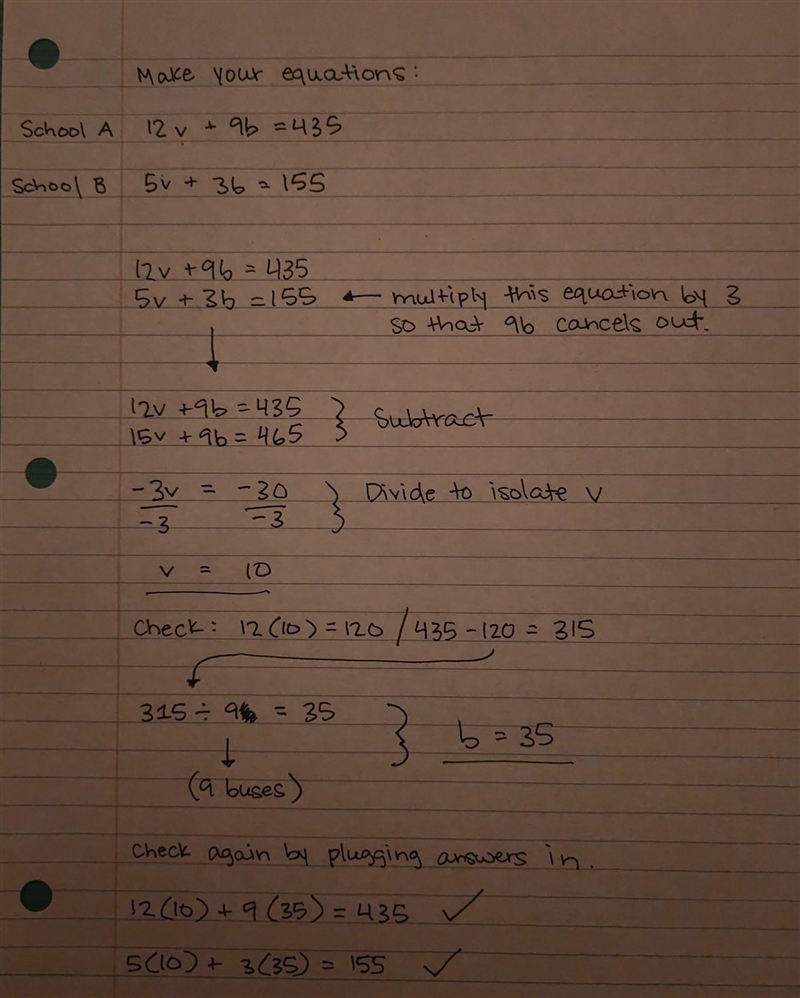 Make your equations:
School A 12v + 9b = 435
School B 5v + 3b = 155
12v + 9b = 435
5v + 3b = 155 ← multiply this equation by 3
so that 9b cancels out.
↓
12v + 9b = 435 } Subtract
15v + 9b = 465
-3v = -30 } Divide to isolate v
-3 -3
v = 10
Check: 12(10) = 120 / 435 - 120 = 315
315 ÷ 9 = 35 } b = 35
↓
(9 buses)
Check again by plugging answers in.
12(10) + 9(35) = 435 ✓
5(10) + 3(35) = 155 ✓